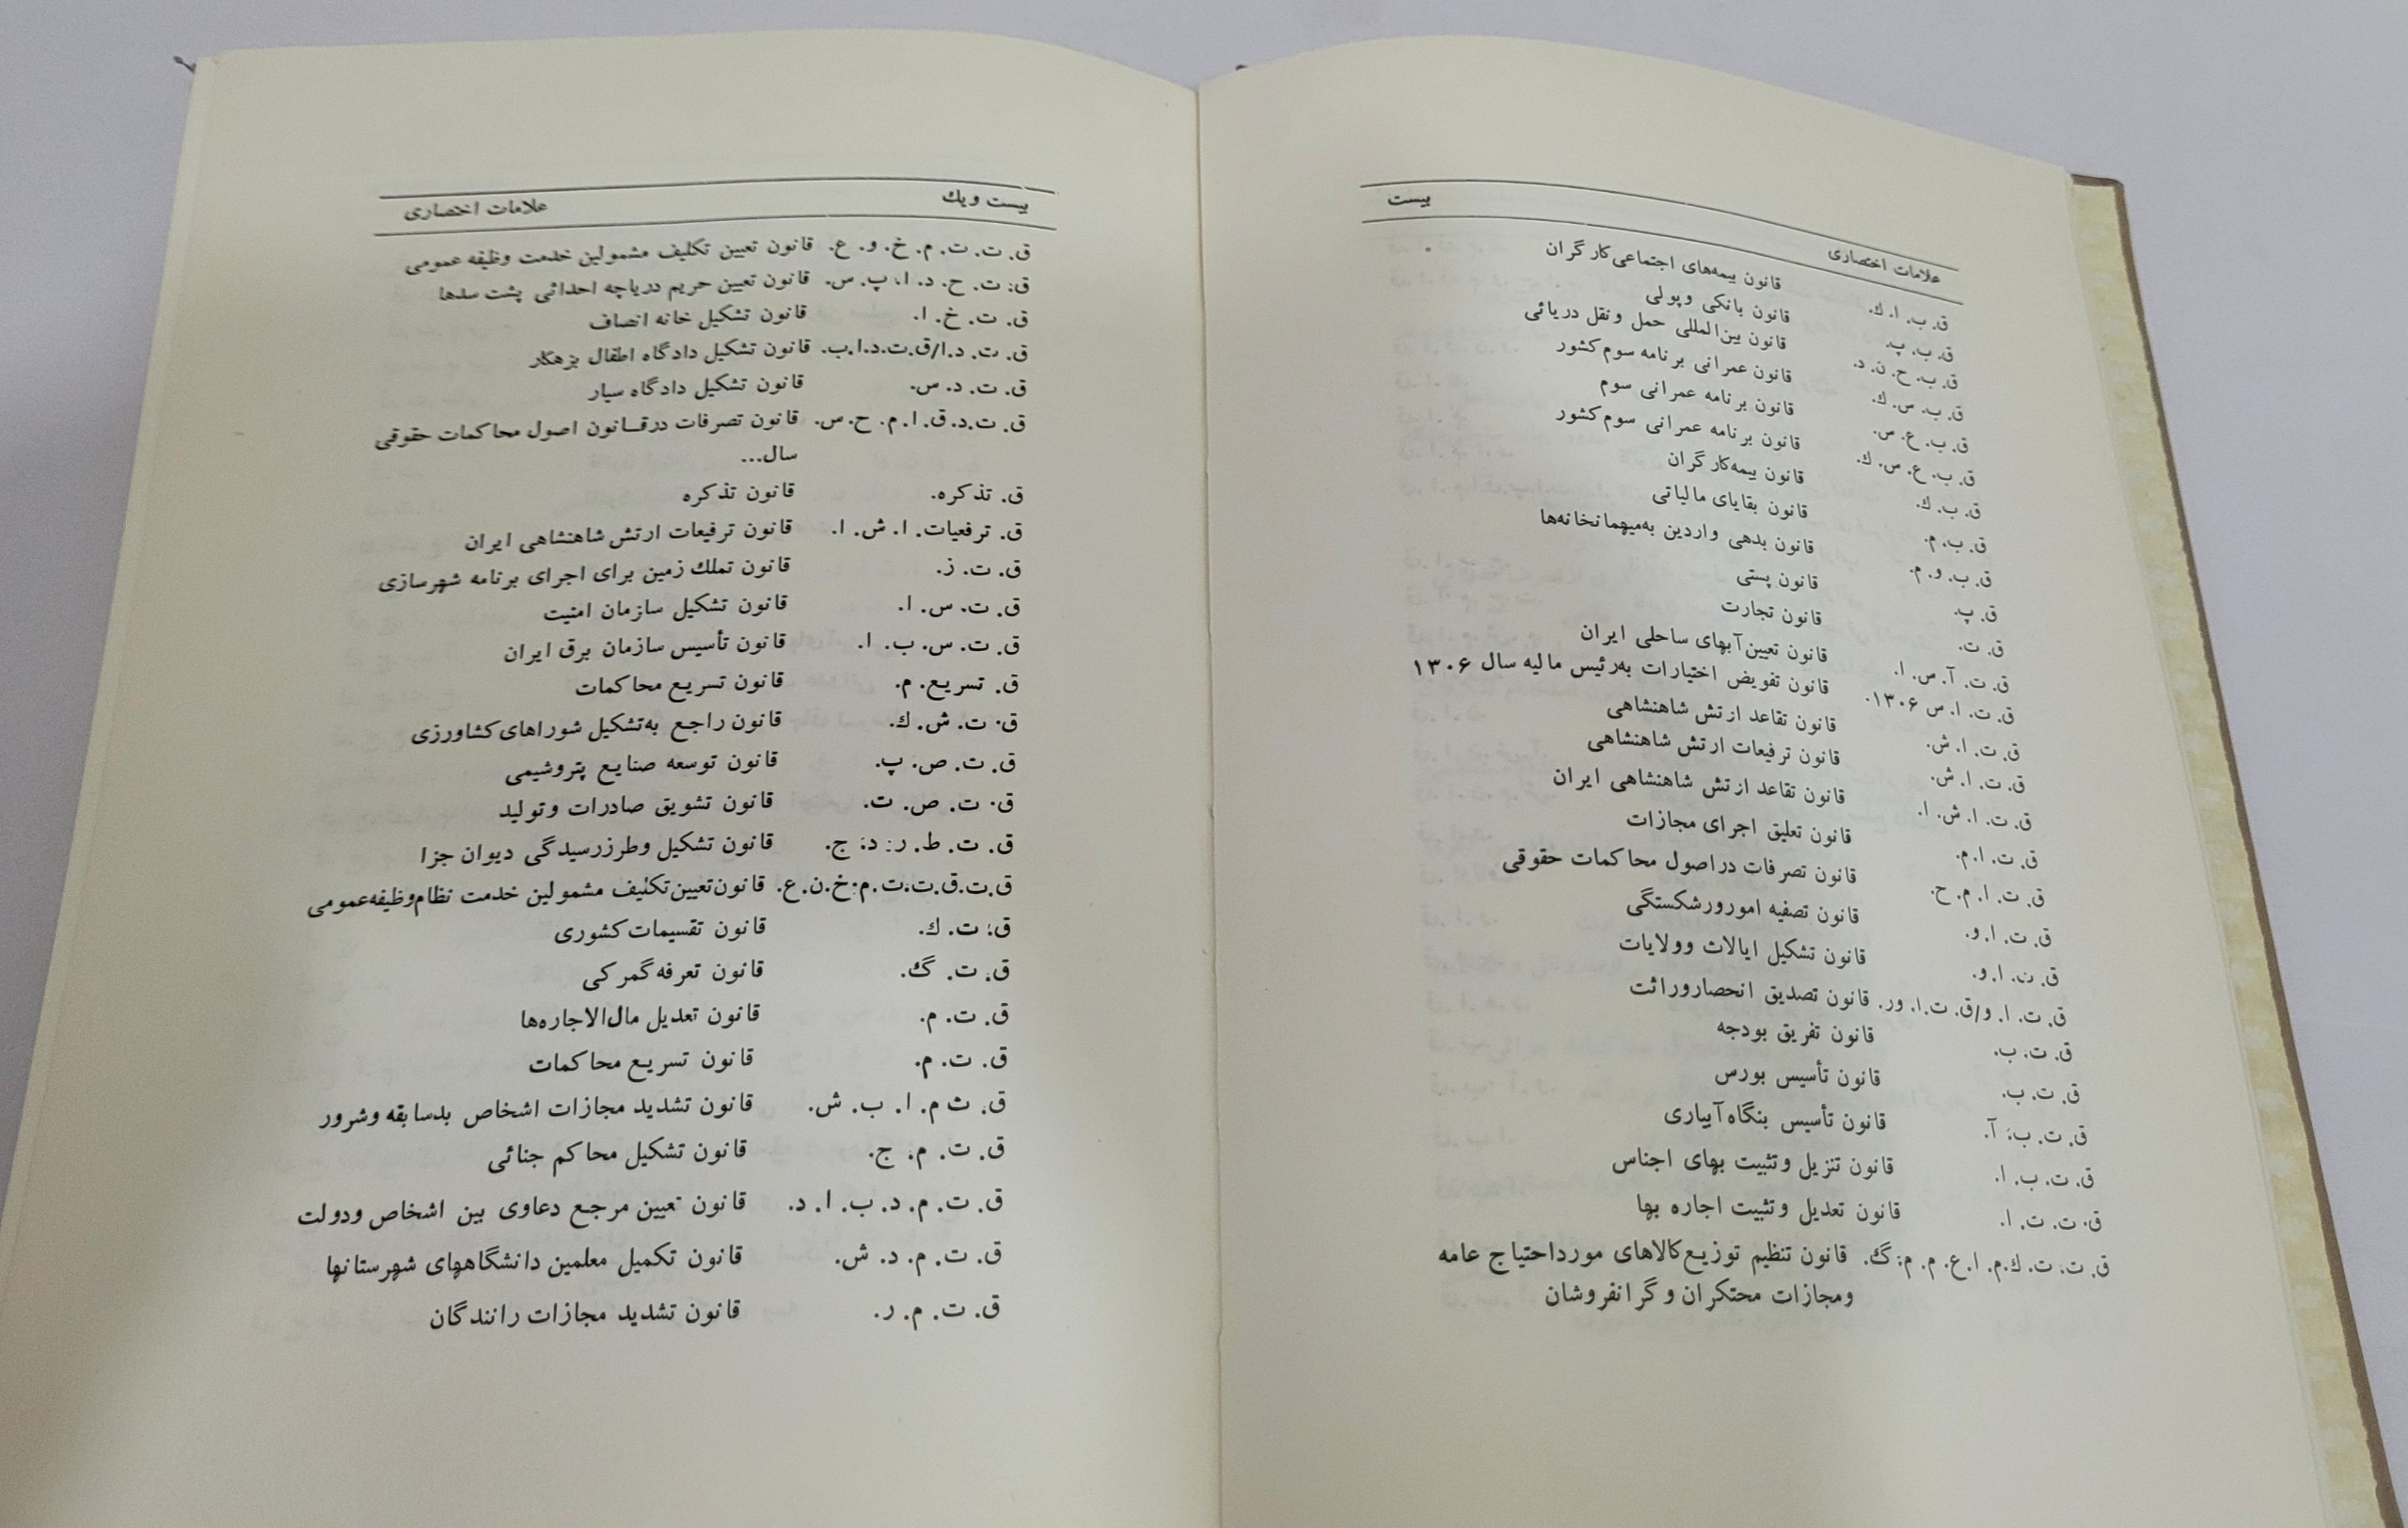 علامات اختصاری بیست
ق. ب. ا. ك. قانون بیمه‌های اجتماعی‌کارگران
ق. ب. پ. قانون بانکی وپولی
ق. ب. ح. ن. د. قانون بین‌المللی حمل ونقل دریائی
ق. ب. س. ك. قانون عمرانی برنامه سوم کشور
ق. ب. ع. س. قانون برنامه عمرانی سوم
ق. ب. ع. س. ك. قانون برنامه عمرانی سوم کشور
ق. ب. ك. قانون بیمه‌کارگران
ق. ب. م. قانون بقایای مالیاتی
ق. ب. و. م. قانون بدهی واردین به‌میهمانخانه‌ها
ق. پ. قانون پستی
ق. ت. قانون تجارت
ق. ت. آ. س. ا. قانون تعیین‌آبهای ساحلی ایران
ق. ت. ا. س ۱۳۰۶. قانون تفویض اختیارات به‌رئیس مالیه سال ۱۳۰۶
ق. ت. ا. ش. قانون تقاعد ارتش شاهنشاهی
ق. ت. ا. ش. قانون ترفیعات ارتش شاهنشاهی
ق. ت. ا. ش. ا. قانون تقاعد ارتش شاهنشاهی ایران
ق. ت. ا. م. قانون تعلیق اجرای مجازات
ق. ت. ا. م. ح. قانون تصرفات دراصول محاکمات حقوقی
ق. ت. ا. و. قانون تصفیه امورورشکستگی
ق. ت. ا. و. قانون تشکیل ایالات وولایات
ق. ت. ا. و/ق. ت.ا. ور. قانون تصدیق انحصاروراثت
ق. ت. ب. قانون تفریق بودجه
ق. ت. ب. قانون تأسیس بورس
ق. ت. ب. آ. قانون تأسیس بنگاه‌آبیاری
ق. ت. ب. ا. قانون تنزیل وتثبیت بهای اجناس
ق. ت. ت. ا. قانون تعدیل وتثبیت اجاره بها
ق. ت. ت. ك.م. ا.ع. م. م. گ. قانون تنظیم توزیع‌کالاهای مورداحتیاج عامه
ومجازات محتکران و گرانفروشان
بیست ویك علامات اختصاری
ق. ت. ت. م. خ. و. ع. قانون تعیین تکلیف مشمولین خدمت وظیفه عمومی
ق. ت. ح. د. ا. پ. س. قانون تعیین حریم دریاچه احداثی پشت سدها
ق. ت. خ. ا. قانون تشکیل خانه انصاف
ق. ت. د.ا/ق.ت.د.ا.ب. قانون تشکیل دادگاه اطفال بزهکار
ق. ت. د. س. قانون تشکیل دادگاه سیار
ق. ت.د.ق.ا.م. ح.س. قانون تصرفات درقانون اصول محاکمات حقوقی
سال...
ق. تذکره. قانون تذکره
ق. ترفعیات. ا. ش. ا. قانون ترفیعات ارتش شاهنشاهی ایران
ق. ت. ز. قانون تملك زمین برای اجرای برنامه شهرسازی
ق. ت. س. ا. قانون تشکیل سازمان امنیت
ق. ت. س. ب. ا. قانون تأسیس سازمان برق ایران
ق. تسریع. م. قانون تسریع محاکمات
ق. ت. ش. ك. قانون راجع به‌تشکیل شوراهای‌کشاورزی
ق. ت. ص. پ. قانون توسعه صنایع پتروشیمی
ق. ت. ص. ت. قانون تشویق صادرات وتولید
ق. ت. ط. ر. د. ج. قانون تشکیل وطرزرسیدگی دیوان جزا
ق.ت.ق.ت.ت.م.خ.ن.ع. قانون‌تعیین‌تکلیف مشمولین خدمت نظام‌وظیفه‌عمومی
ق. ت. ك. قانون تقسیمات‌کشوری
ق. ت. گ. قانون تعرفه‌گمرکی
ق. ت. م. قانون تعدیل مال‌الاجاره‌ها
ق. ت. م. قانون تسریع محاکمات
ق. ث م. ا. ب. ش. قانون تشدید مجازات اشخاص بدسابقه وشرور
ق. ت. م. ج. قانون تشکیل محاکم جنائی
ق. ت. م. د. ب. ا. د. قانون تعیین مرجع دعاوی بین اشخاص ودولت
ق. ت. م. د. ش. قانون تکمیل معلمین دانشگاههای شهرستانها
ق. ت. م. ر. قانون تشدید مجازات رانندگان